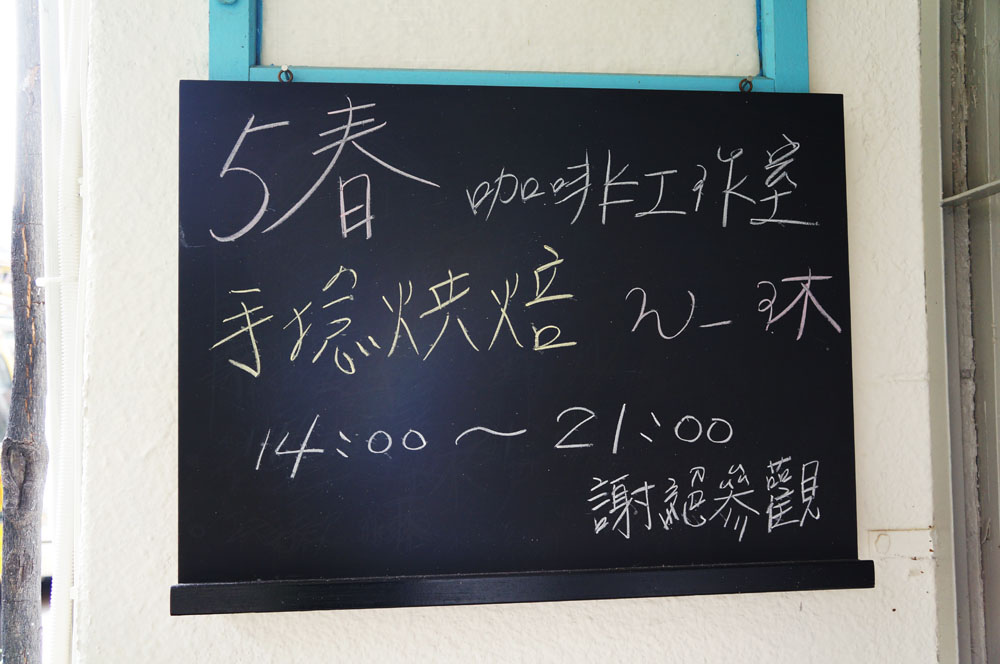 5春 咖啡工作室
手烘焙 W一 休
14:00～21:00
謝絕參觀